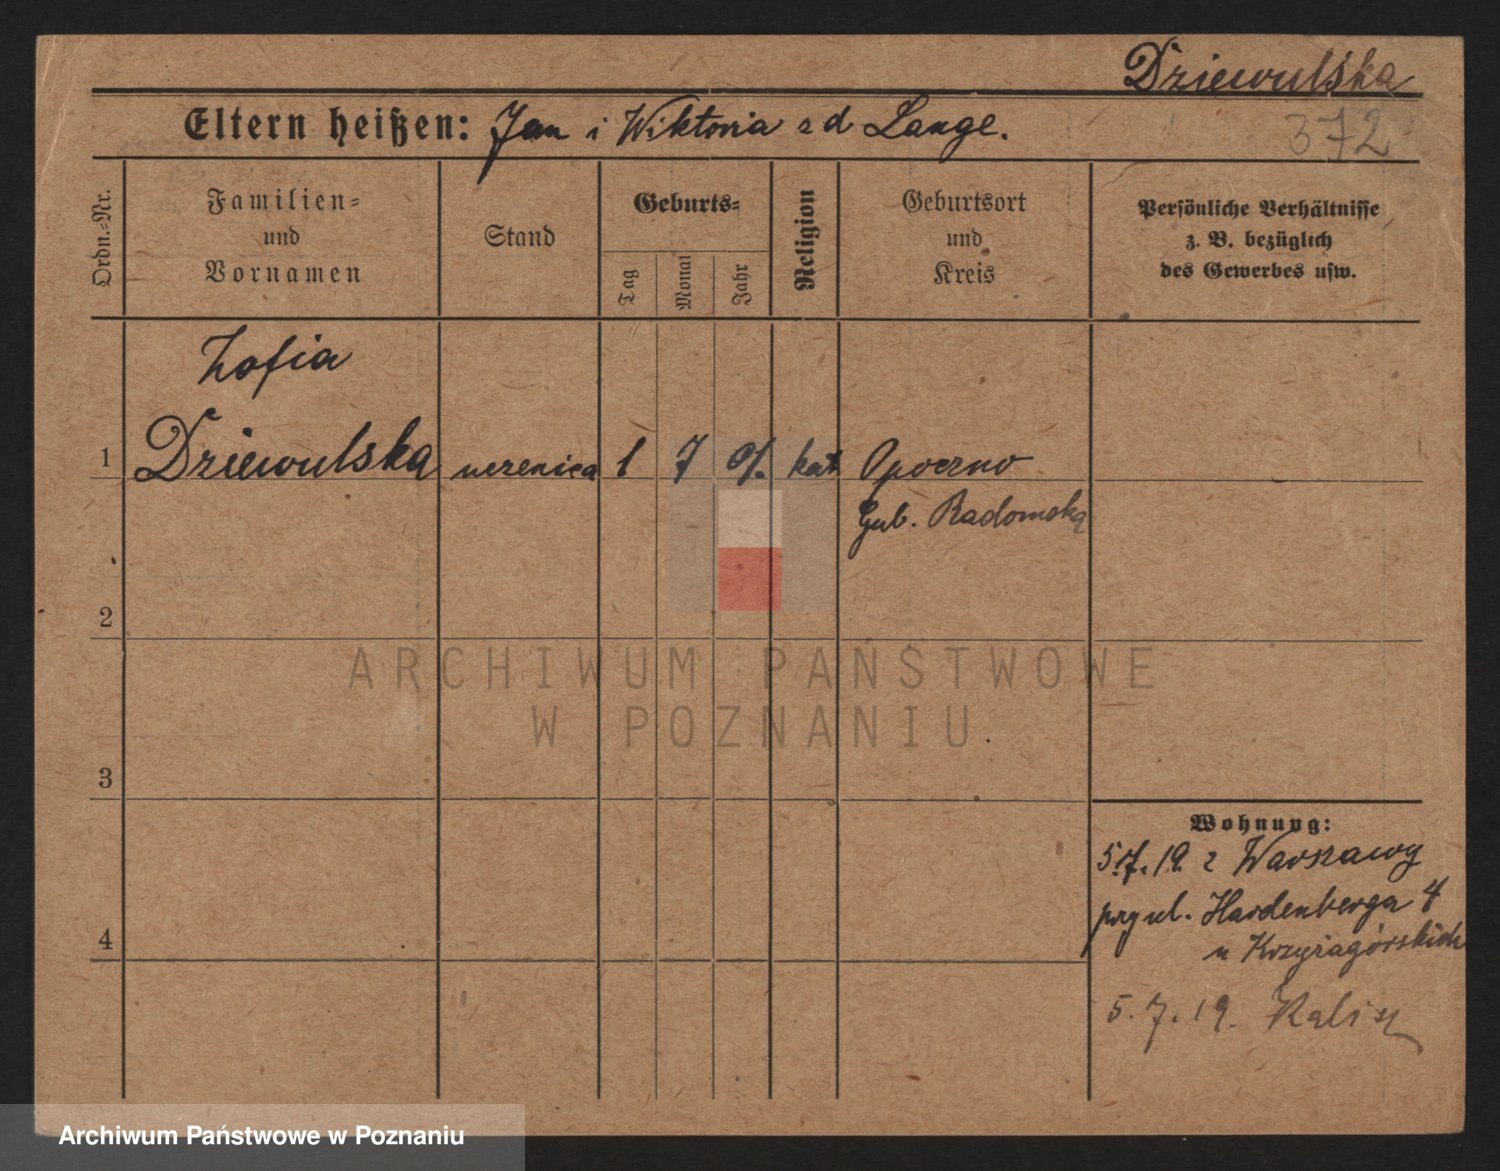 Dziewulska
Eltern heißen: Jan i Wiktoria z d Lange.
372
Ordn.=Nr.
Familien=
und
Vornamen
Stand
Geburts=
Tag
Monat
Jahr
Religion
Geburtsort
und
Kreis
Persönliche Verhältnisse
z. B. bezüglich
des Gewerbes usw.
Zofia
1 Dziewulska uczenica 1 7 01. kat Opoczno
Gub. Radomską
2
ARCHIWUM PAŃSTWOWE
W POZNANIU
3
Wohnung:
5.7.19. z Warszawy
przy ul. Hardenberga 4
4
u Krzyżagórskich
5.7.19. Kalisz
Archiwum Państwowe w Poznaniu